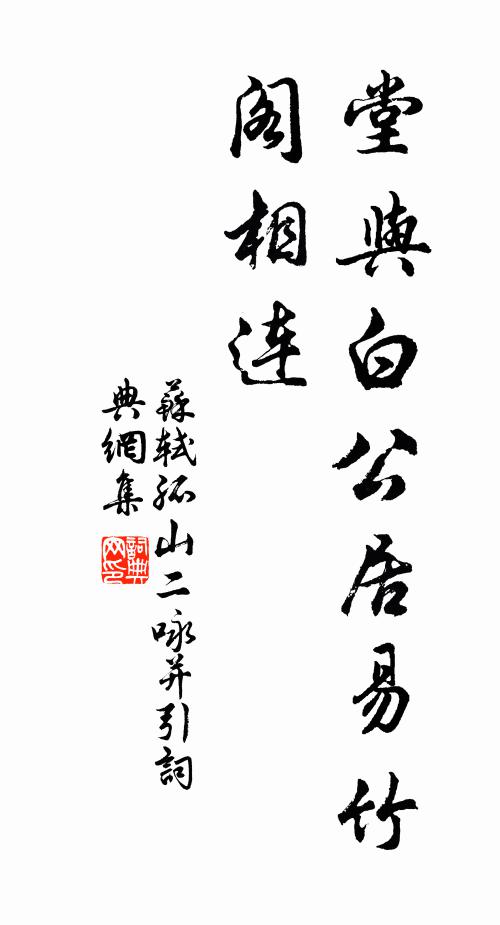 堂與白公居易竹
阁相连
蘇軾孤山二咏并引詞
典網集
詞典
网印